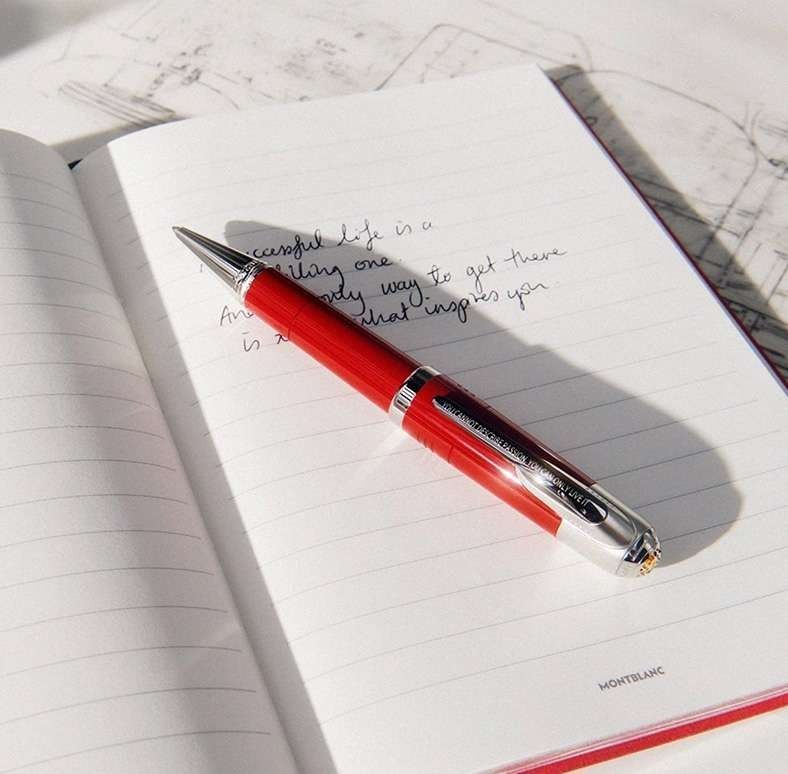 successful life is a
one.
only way to get there
is what inspires you
YOU CANNOT DESCRIBE PASSION, YOU CAN ONLY LIVE IT
MONTBLANC